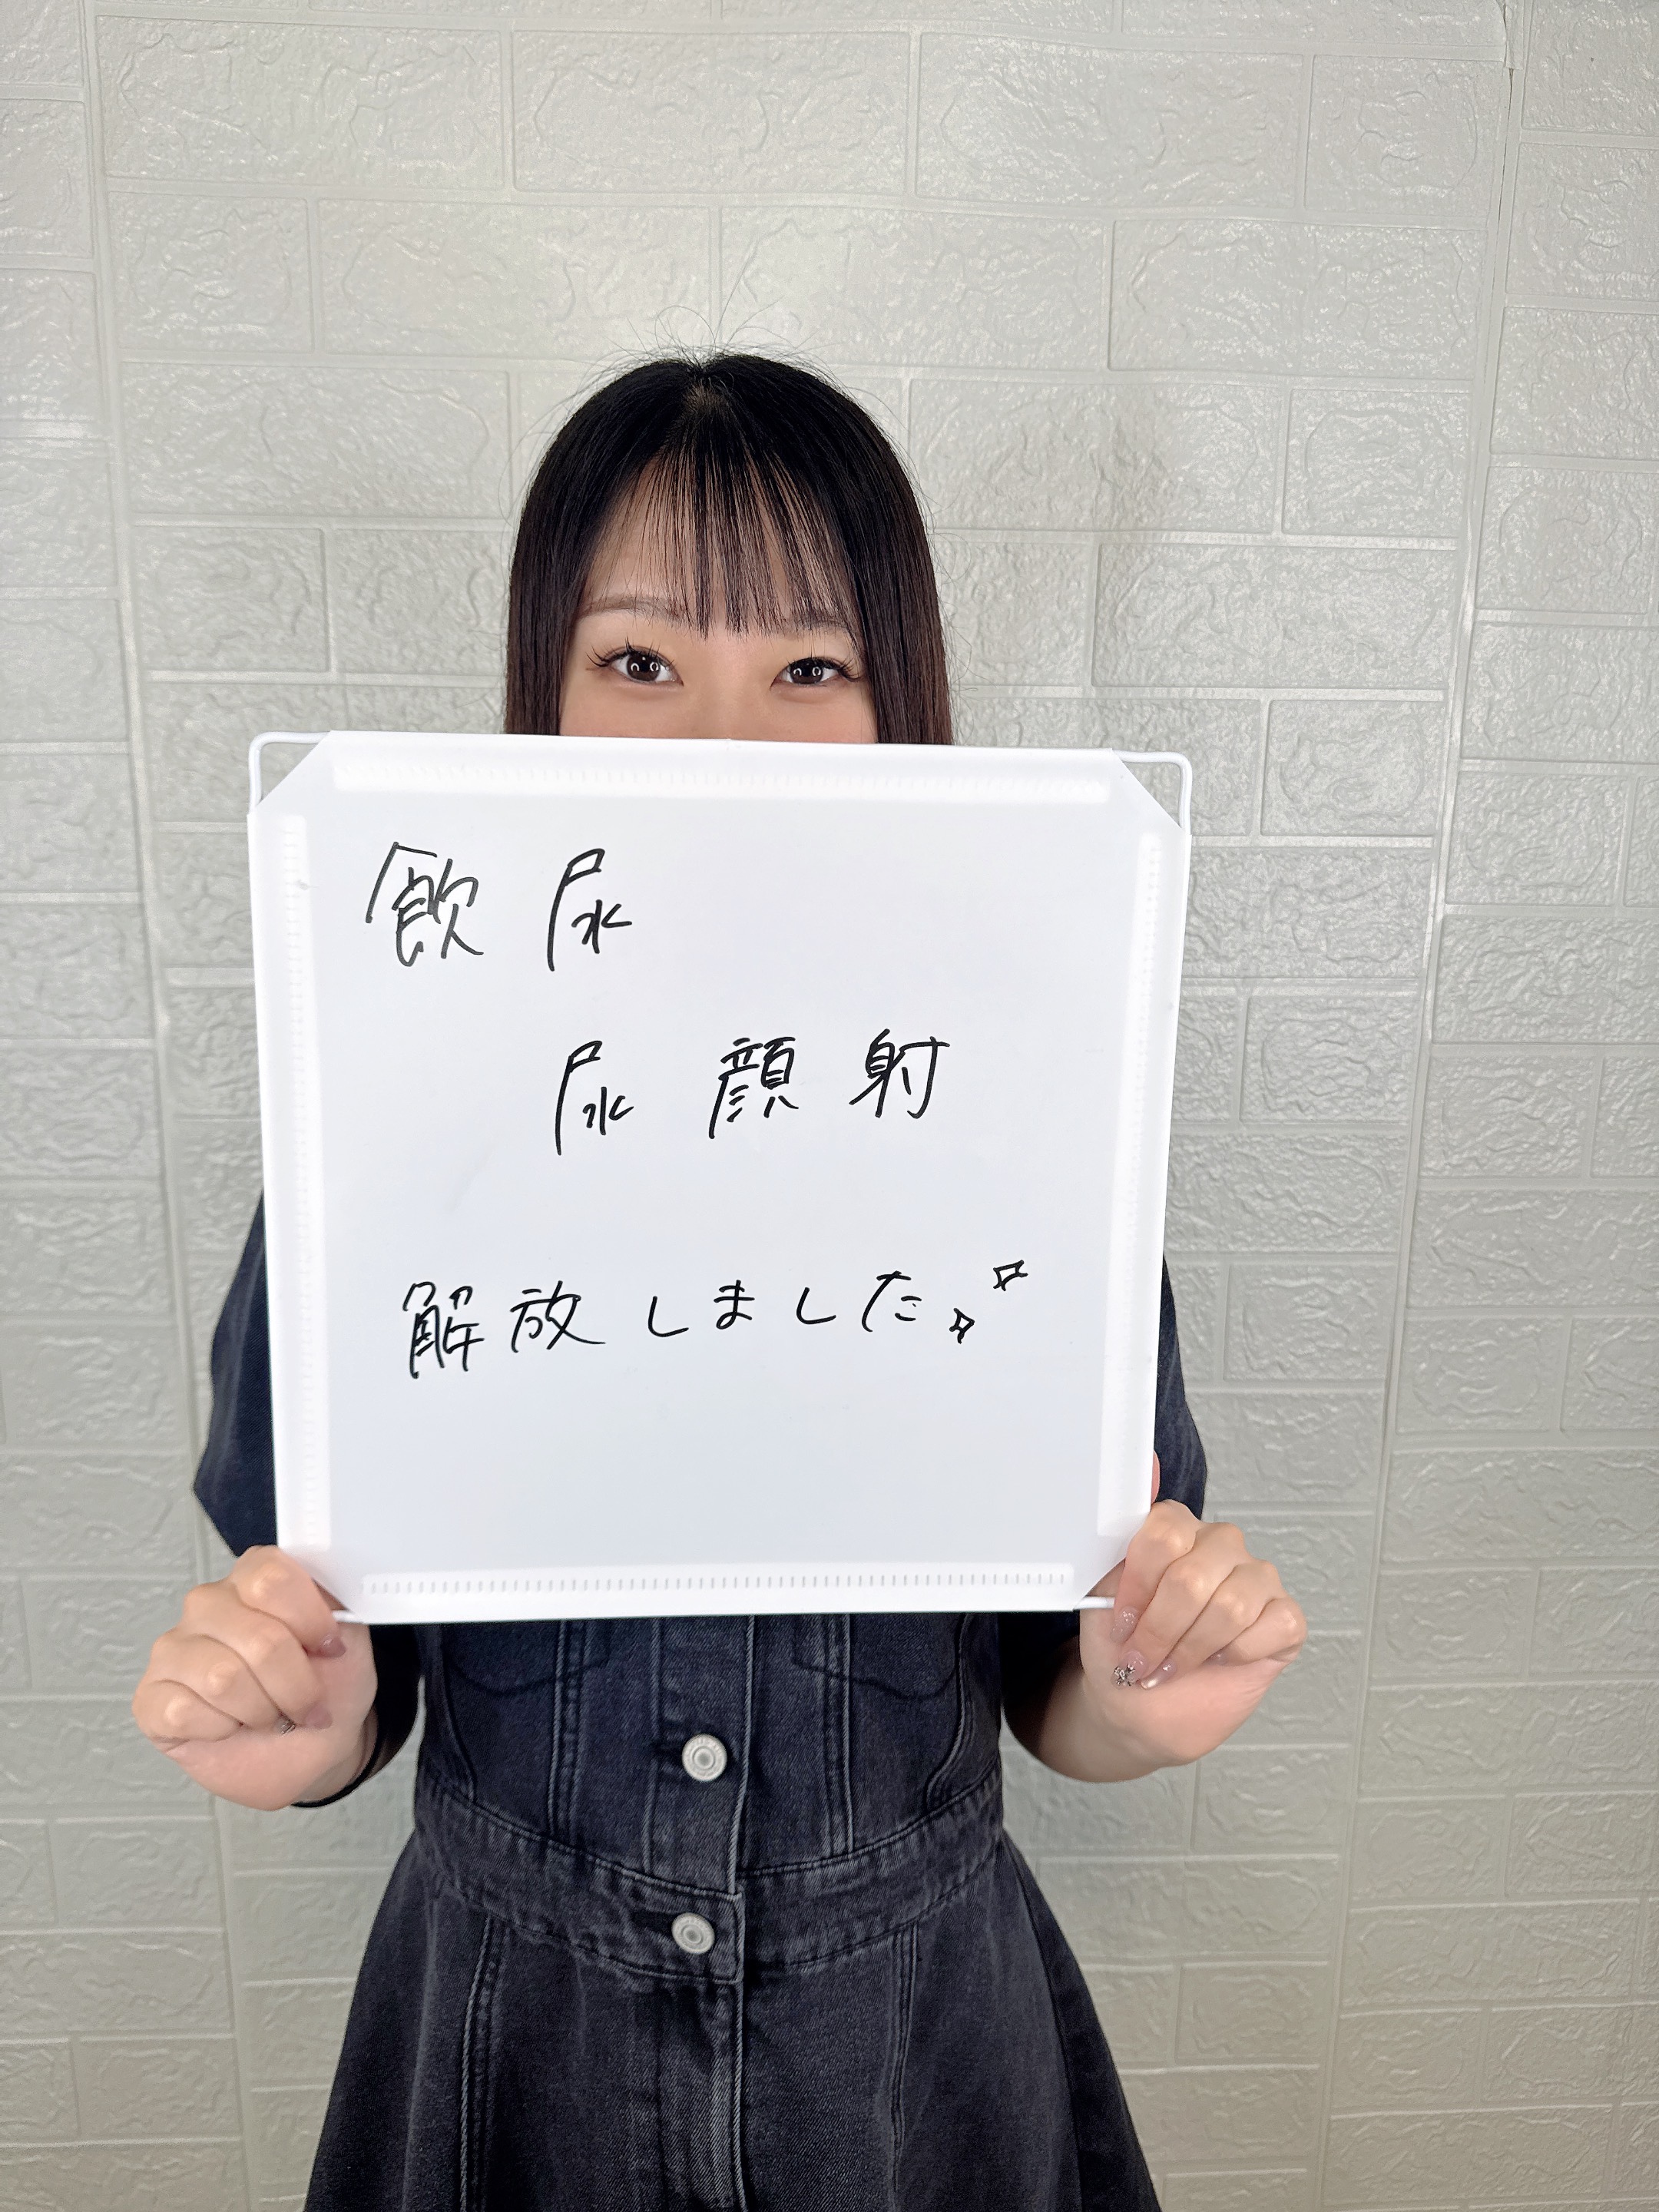 飲尿
尿顔射
解放しました✧✧